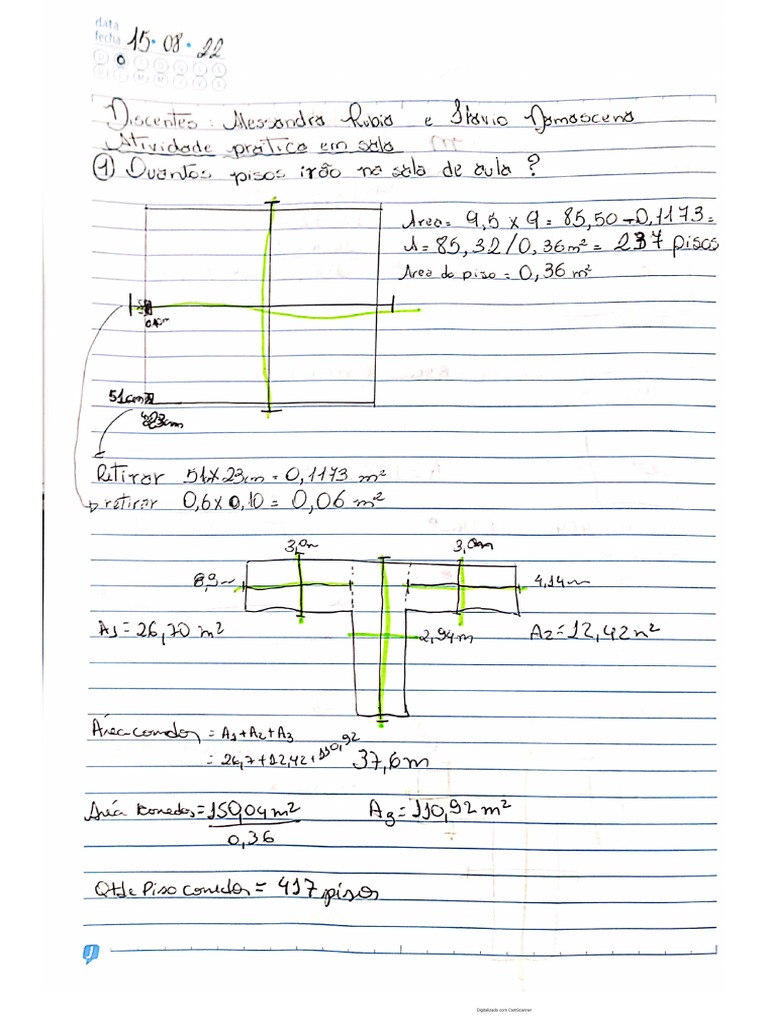 data
fecha 15.08.22
Discentes: Alessandra Rubia e Flávio Damasceno
Atividade prática em sala
① Quantos pisos irão na sala de aula?
Area = 9,5 x 9 = 85,50 - 0,1173 =
A = 85,32 / 0,36m² = 237 pisos
Area do piso = 0,36 m²
51cm
23cm
Retirar 51 x 23cm = 0,1173 m²
retirar 0,6 x 0,10 = 0,06 m²
3,0m 3,0m
8,9m 4,14m
A1 = 26,70 m² 2,94m A2 = 12,42 m²
Área corredor = A1 + A2 + A3
= 26,7 + 12,42 + 110,92 37,6m
Área corredor = 150,04 m² A3 = 110,92 m²
0,36
Qtde Piso corredor = 417 pisos
Digitalizado com CamScanner